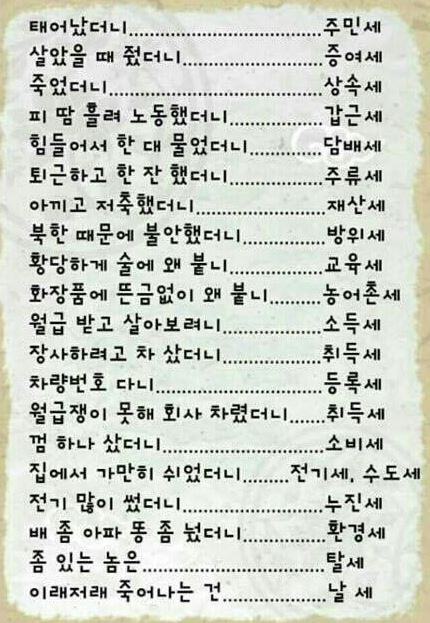 태어났더니..............................주민세
살았을 때 줬더니......................증여세
죽었더니.................................상속세
피 땀 흘려 노동했더니..............갑근세
힘들어서 한 대 물었더니...........담배세
퇴근하고 한 잔 했더니..............주류세
아끼고 저축했더니....................재산세
북한 때문에 불안했더니............방위세
황당하게 술에 왜 붙니..............교육세
화장품에 뜬금없이 왜 붙니........농어촌세
월급 받고 살아보려니...............소득세
장사하려고 차 샀더니...............취득세
차량번호 다니..........................등록세
월급쟁이 못해 회사 차렸더니......취득세
껌 하나 샀더니.........................소비세
집에서 가만히 쉬었더니........전기세, 수도세
전기 많이 썼더니......................누진세
배 좀 아파 똥 좀 눴더니............환경세
좀 있는 놈은............................탈세
이래저래 죽어나는 건................날 세